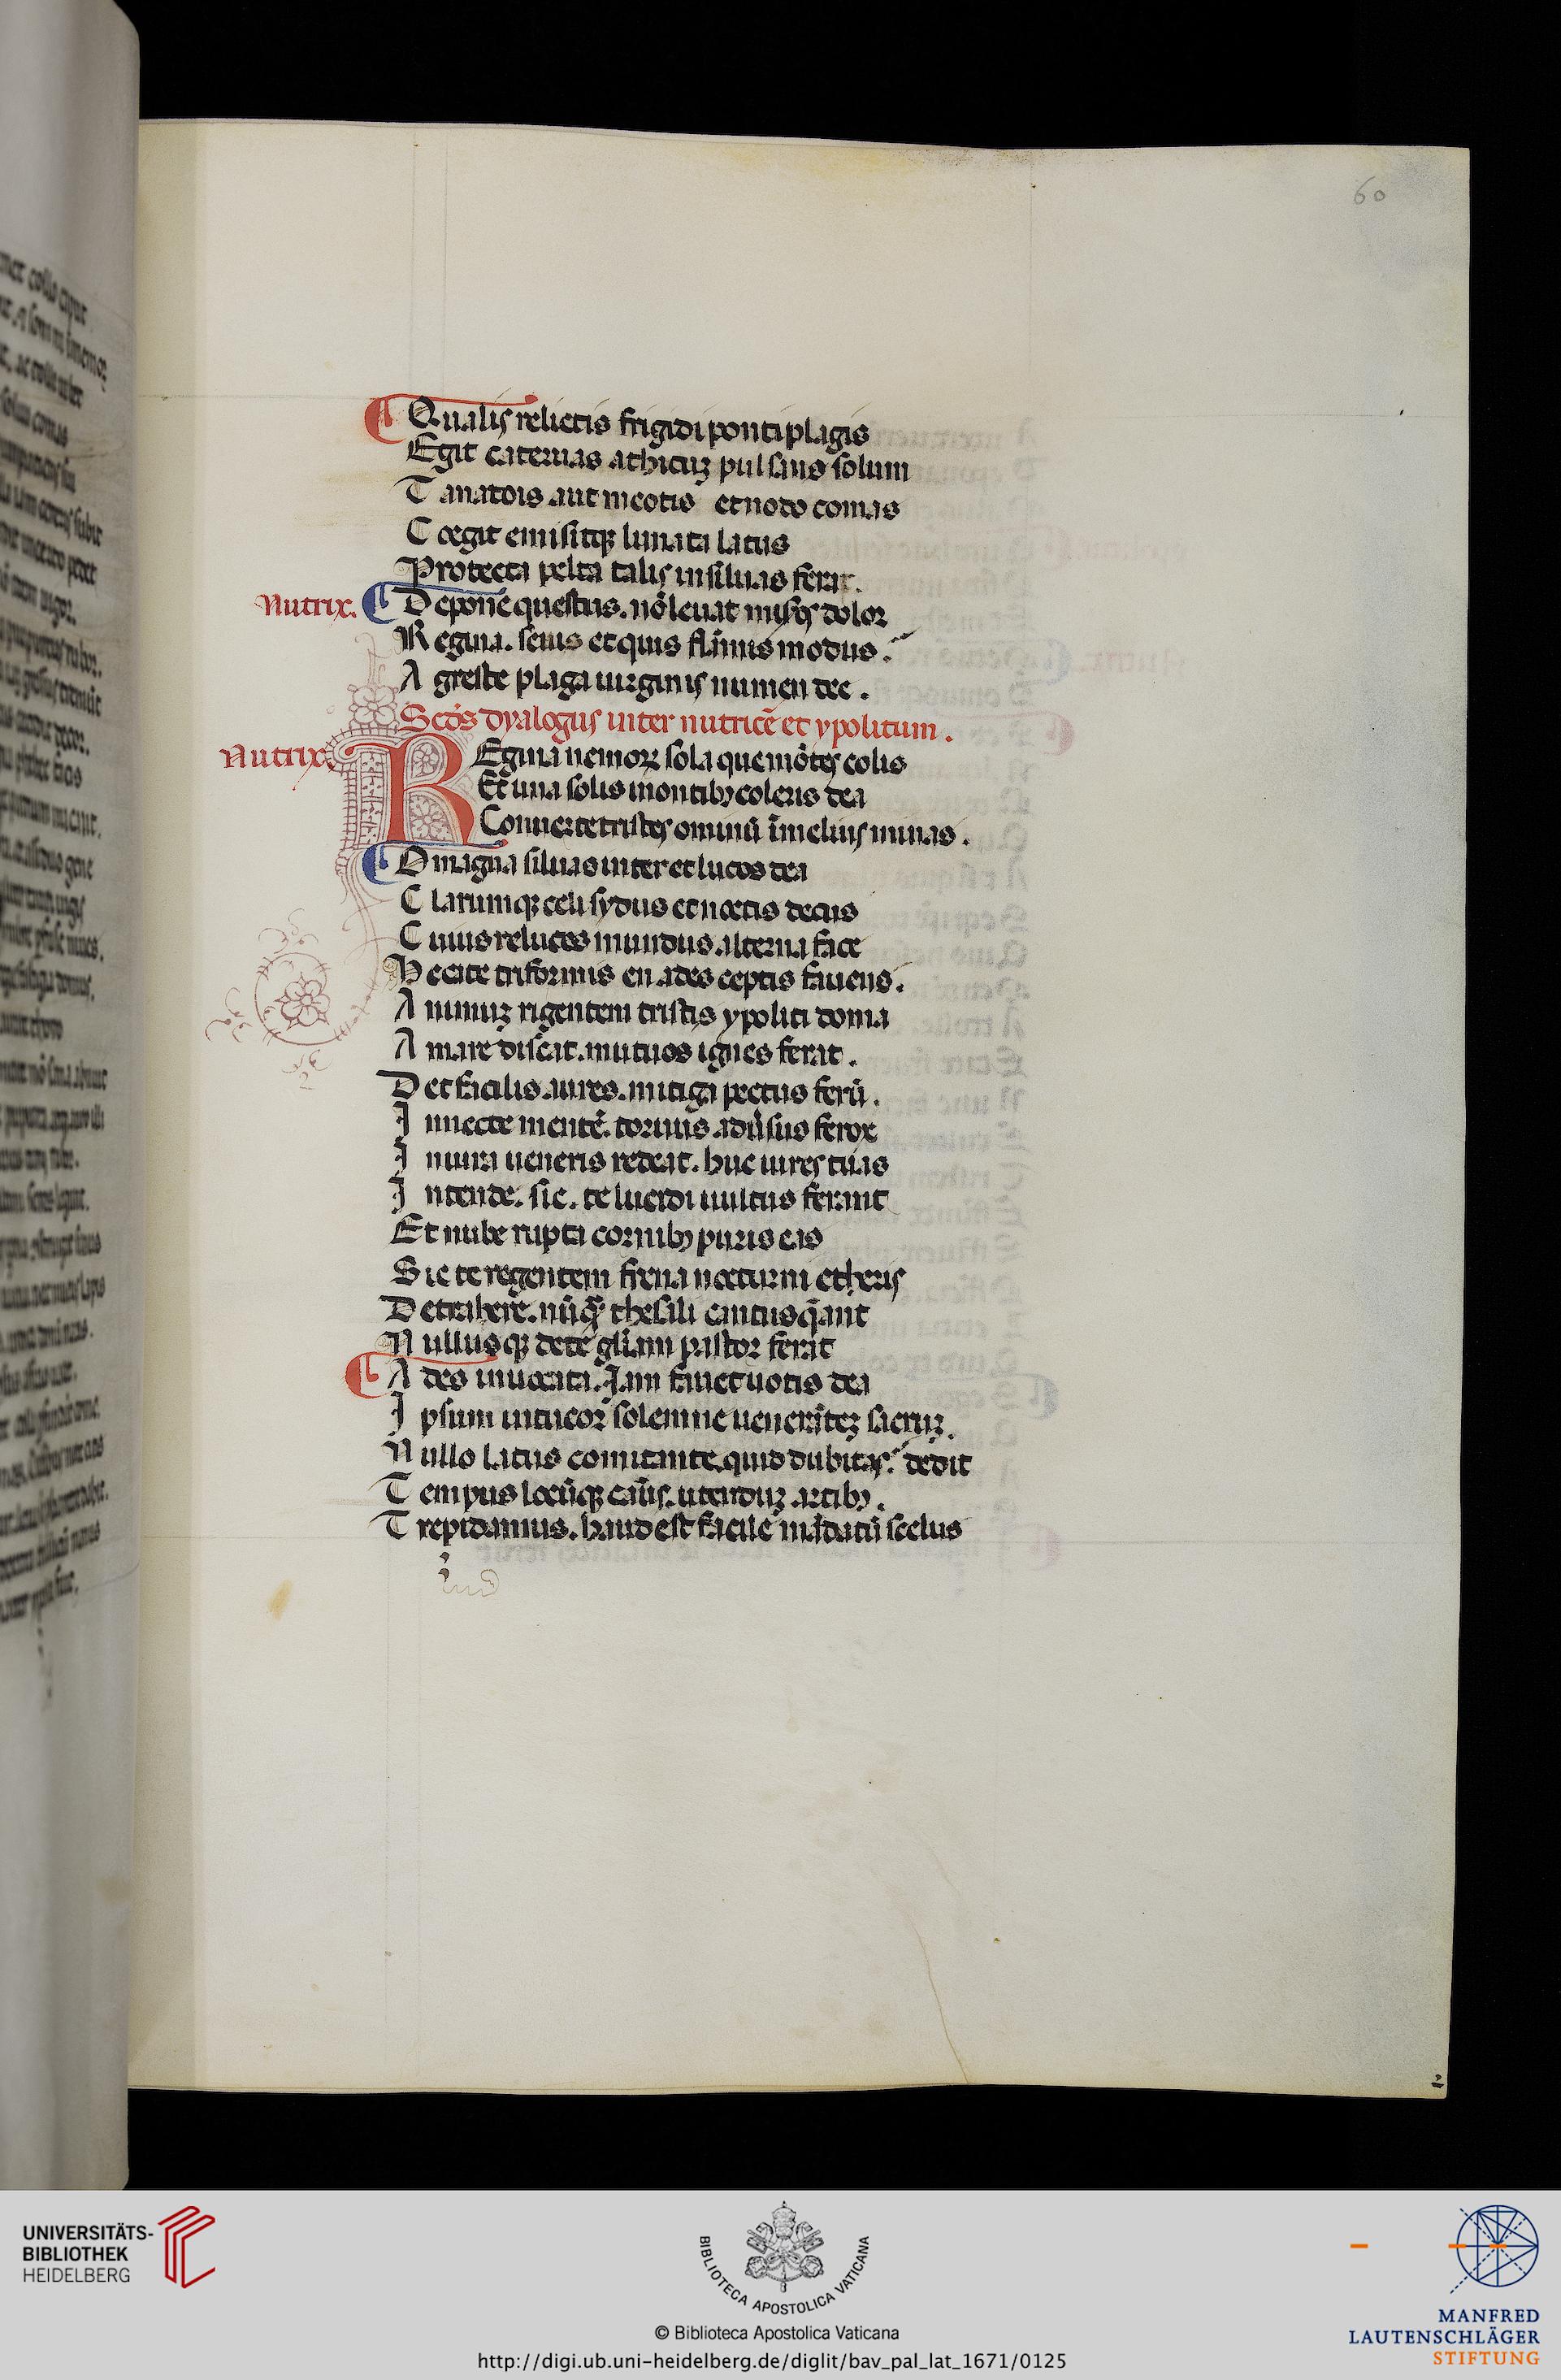 60
Qualis relictis frigidi ponti plagis
Egit cateruas athicuꝫ pulsans solum
Tanatois aut meotis et nodo comas
Coegit emisitqꝫ lunata latus
Protecta pelta talis in siluas ferar.
Nutrix. Depone questus. nō leuat misr̃os dolor
Regina. seuis et quis flāmis modus.
Agreste placa uirginis numen dee.
Scd̃s dyalogus inter nutricē et ypolitum.
Nutrix REgina nemoꝝ sola que mōtes colis
Et una solis montibꝫ coleris dea
Conuerte tristes ominū ī melius minas.
O magna siluas inter et lucos dea
Clarumqꝫ celi sydus et noctis decus
Cuius relucet mundus alterna face
Hecate triformis en ades ceptis fauens.
Animuꝫ rigentem tristis ypoliti doma
Amare discat. mutuos ignes ferat.
Det facilis aures. mitiga pectus ferū.
Innecte mentē. toruus aduũsus ferox
In iura ueneris redeat. huc uires tuas
Intende. sic. te lucidi uultus ferant
Et nube rupta cornibꝫ puris eas
Sic te regentem frena nocturni etheris
Detrahere. nūqꝫ thesali cantus q̄ant
Nullusqꝫ de te gl̃iam pastor ferat
Ades inuocata. Iam fauet uotis dea
Ipsum intueor solemne uenerātez sacruꝫ.
Nullo latus comitante. quid dubitas. dedit
Tempus locūqꝫ casus. utenduꝫ artibꝫ.
Trepidamus. haud est facile mādatū scelus
UNIVERSITÄTS-
BIBLIOTHEK
HEIDELBERG
BIBLIOTECA APOSTOLICA VATICANA
© Biblioteca Apostolica Vaticana
http://digi.ub.uni-heidelberg.de/diglit/bav_pal_lat_1671/0125
MANFRED
LAUTENSCHLÄGER
STIFTUNG